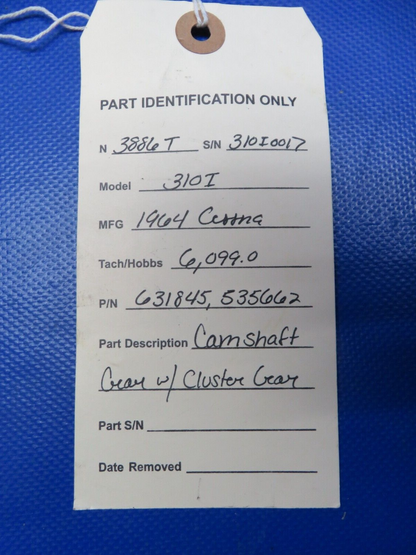 PART IDENTIFICATION ONLY
N 3886T S/N 310I0017
Model 310I
MFG 1964 Cessna
Tach/Hobbs 6,099.0
P/N 631845, 535662
Part Description Camshaft
Gear w/ Cluster Gear
Part S/N
Date Removed